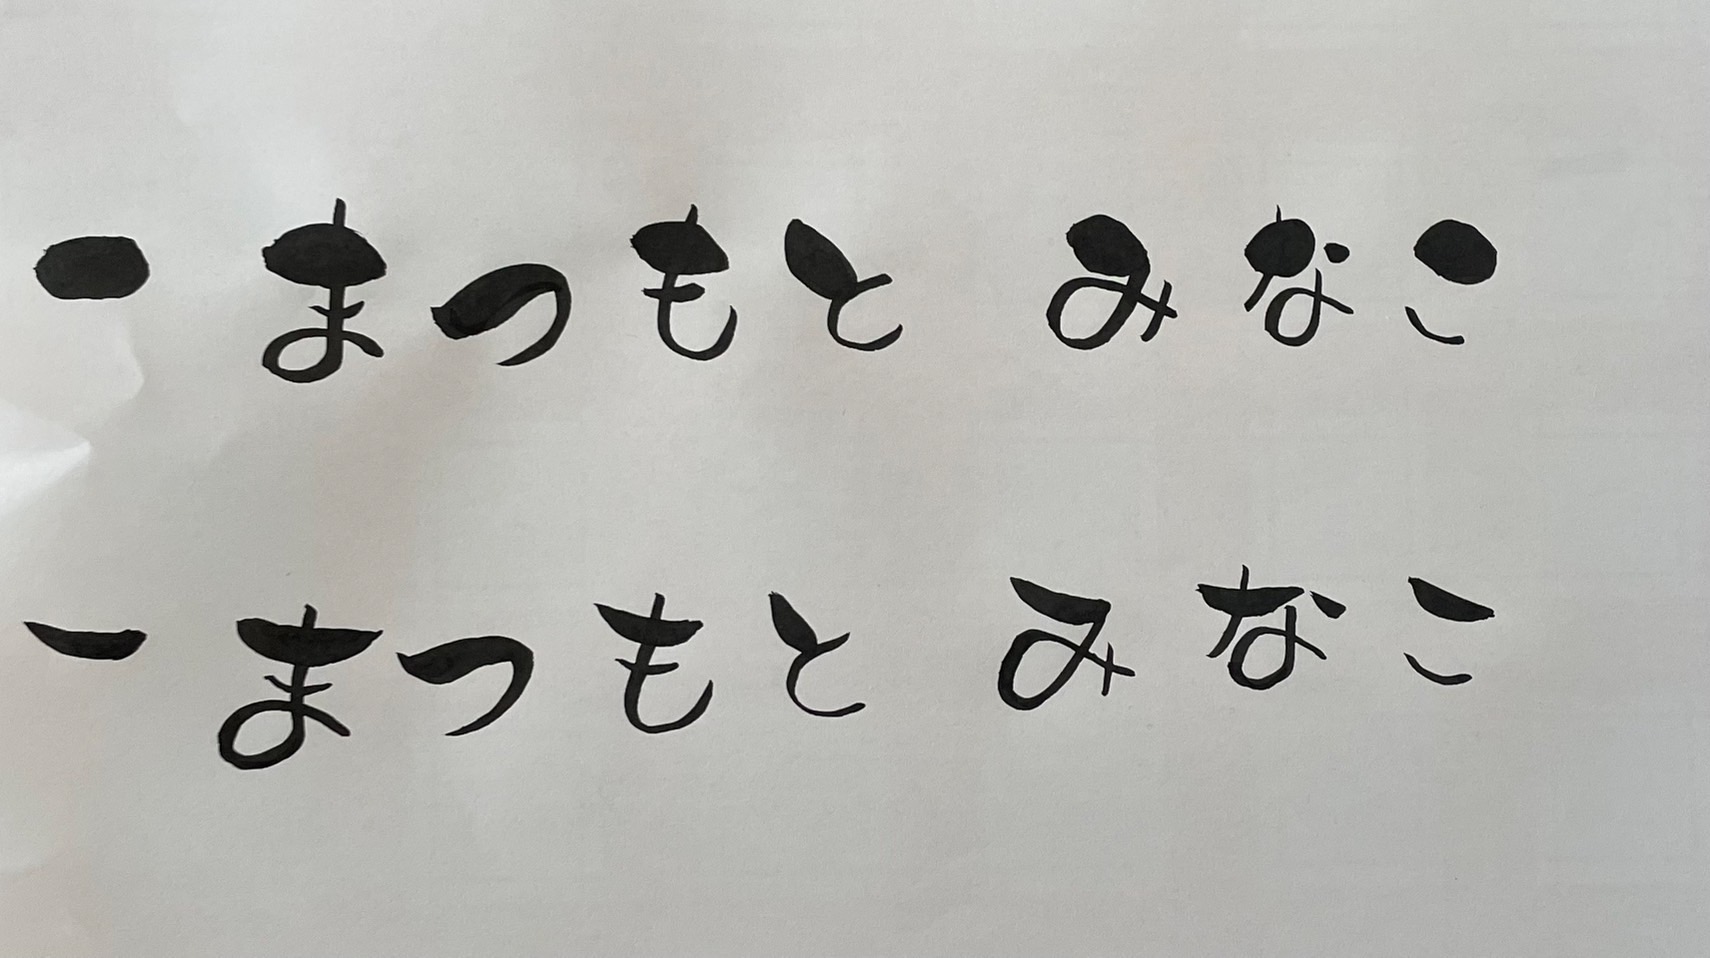 まつもと みなこ
ーまつもと みなこ